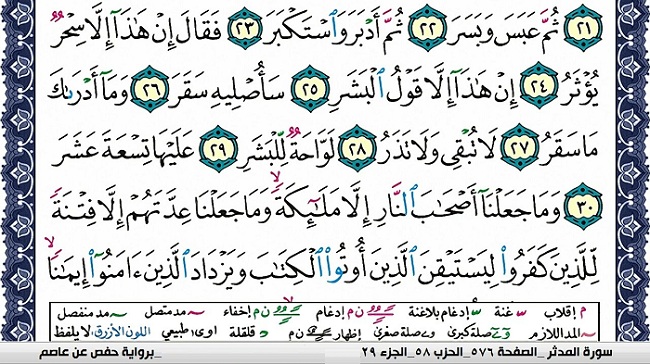 ٢١ ثُمَّ عَبَسَ وَبَسَرَ ٢٢ ثُمَّ أَدْبَرَ وَٱسْتَكْبَرَ ٢٣ فَقَالَ إِنْ هَٰذَآ إِلَّا سِحْرٌ
يُؤْثَرُ ٢٤ إِنْ هَٰذَآ إِلَّا قَوْلُ ٱلْبَشَرِ ٢٥ سَأُصْلِيهِ سَقَرَ ٢٦ وَمَآ أَدْرَىٰكَ
مَا سَقَرُ ٢٧ لَا تُبْقِى وَلَا تَذَرُ ٢٨ لَوَّاحَةٌ لِّلْبَشَرِ ٢٩ عَلَيْهَا تِسْعَةَ عَشَرَ
٣٠ وَمَا جَعَلْنَآ أَصْحَٰبَ ٱلنَّارِ إِلَّا مَلَٰٓئِكَةً وَمَا جَعَلْنَا عِدَّتَهُمْ إِلَّا فِتْنَةً
لِّلَّذِينَ كَفَرُوا۟ لِيَسْتَيْقِنَ ٱلَّذِينَ أُوتُوا۟ ٱلْكِتَٰبَ وَيَزْدَادَ ٱلَّذِينَ ءَامَنُوٓا۟ إِيمَٰنًا
م إقلاب غنة إدغام بلاغنة ن م إدغام ن م إخفاء مد متصل مد منفصل
المد اللازم صلة كبرى صلة صغرى إظهار ن م قلقلة اوى طبيعي اللون الأزرق لا يلفظ
سورة المدثر _الصفحة ٥٧٦_الحزب ٥٨_الجزء ٢٩ _برواية حفص عن عاصم